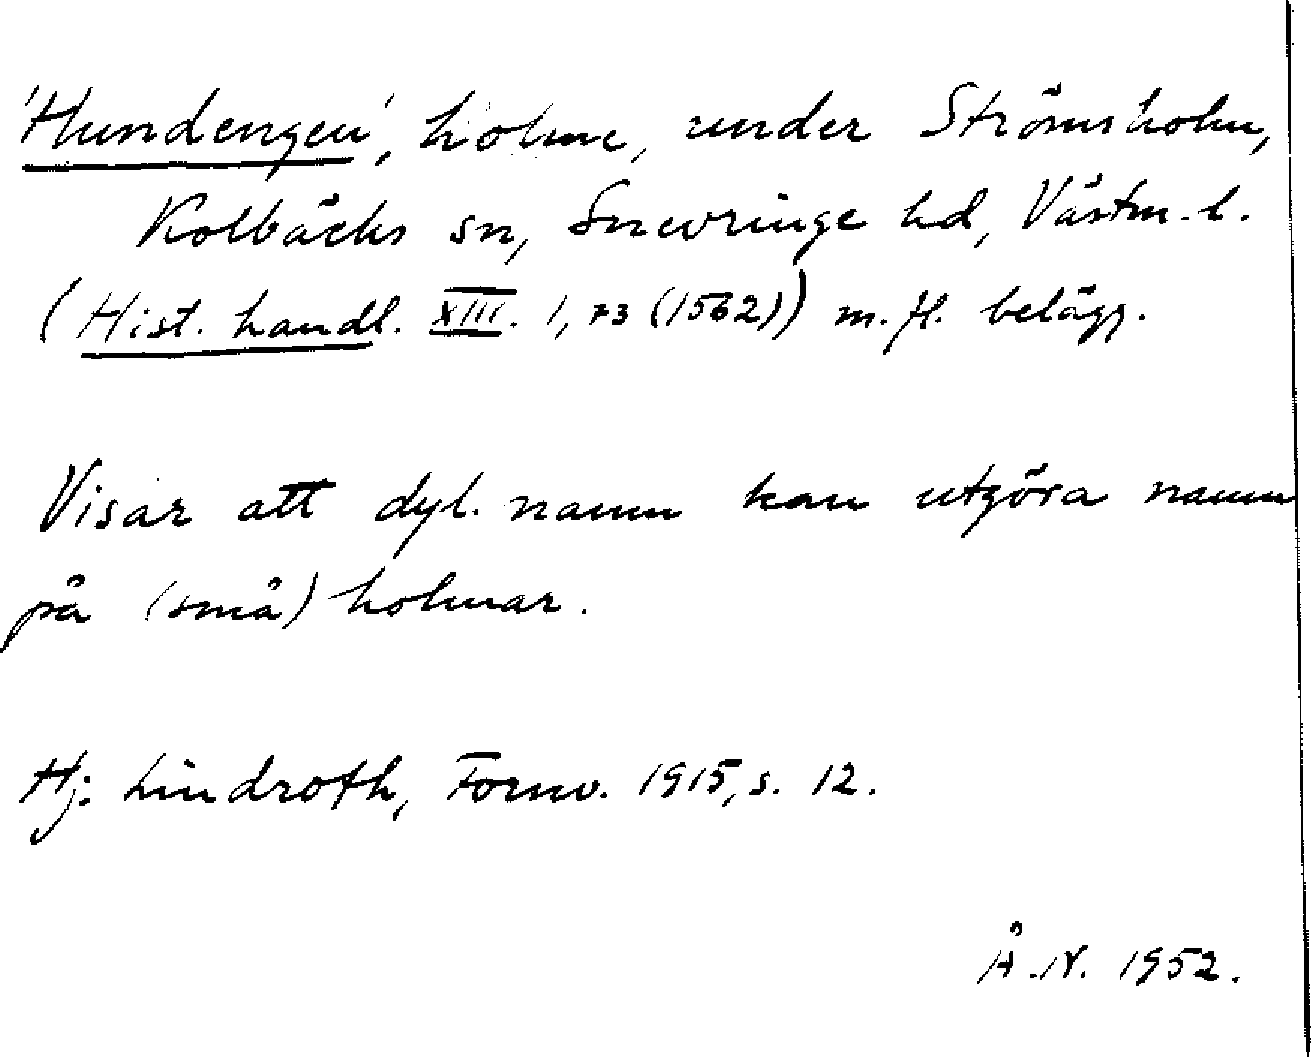 'Hundengen', holme, under Strömsholm,
Kolbäcks sn, Snevringe hd, Västm. l.
(Hist. handl. XIII. 1, 73 (1562)) m. fl. belägg.
Visar att dyl. namn kan utgöra namn
på (små) holmar.
Hj. Lindroth, Fornv. 1915, s. 12.
Å. N. 1952.